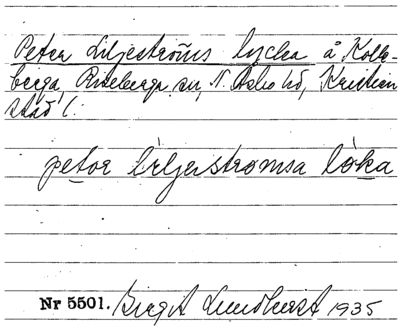 Petter Liljeströms lycka å Kolle-
berga, Riseberga sn, N. Åsbo hd, Kristian
stad l.
petor liljastromsa löka
Nr 5501. Birgit Lundkvist 1935